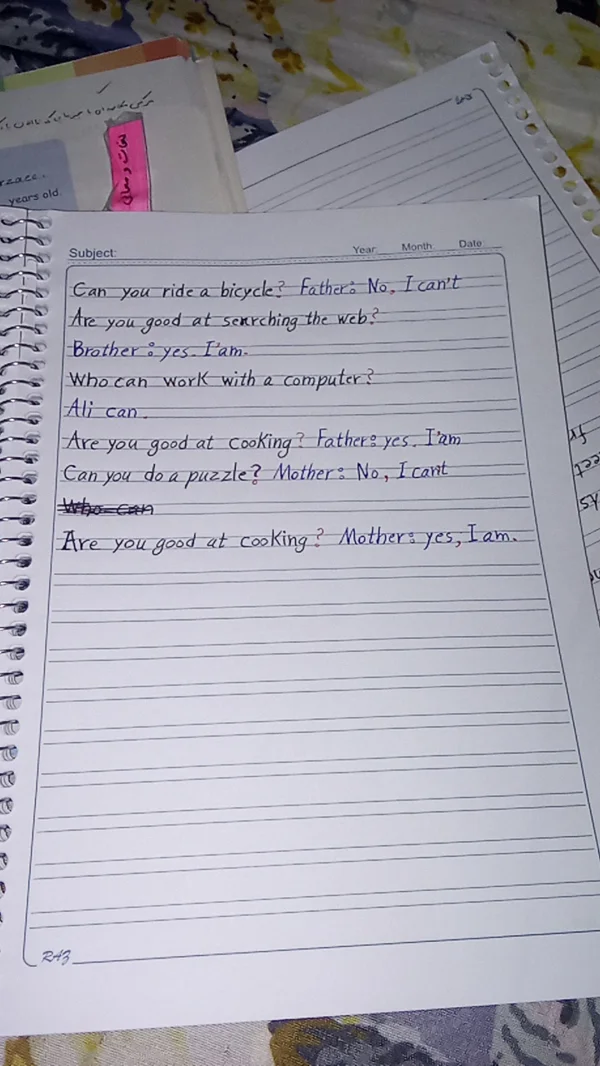 reace.
years old.
لغات و معانی
Subject: Year: Month: Date:
Can you ride a bicycle? Father: No, I can't
Are you good at searching the web?
Brother: yes. I'am.
Who can work with a computer?
Ali can.
Are you good at cooking? Father: yes. I'am
Can you do a puzzle? Mother: No, I cant
Who can
Are you good at cooking? Mother: yes, I am.
RAZ